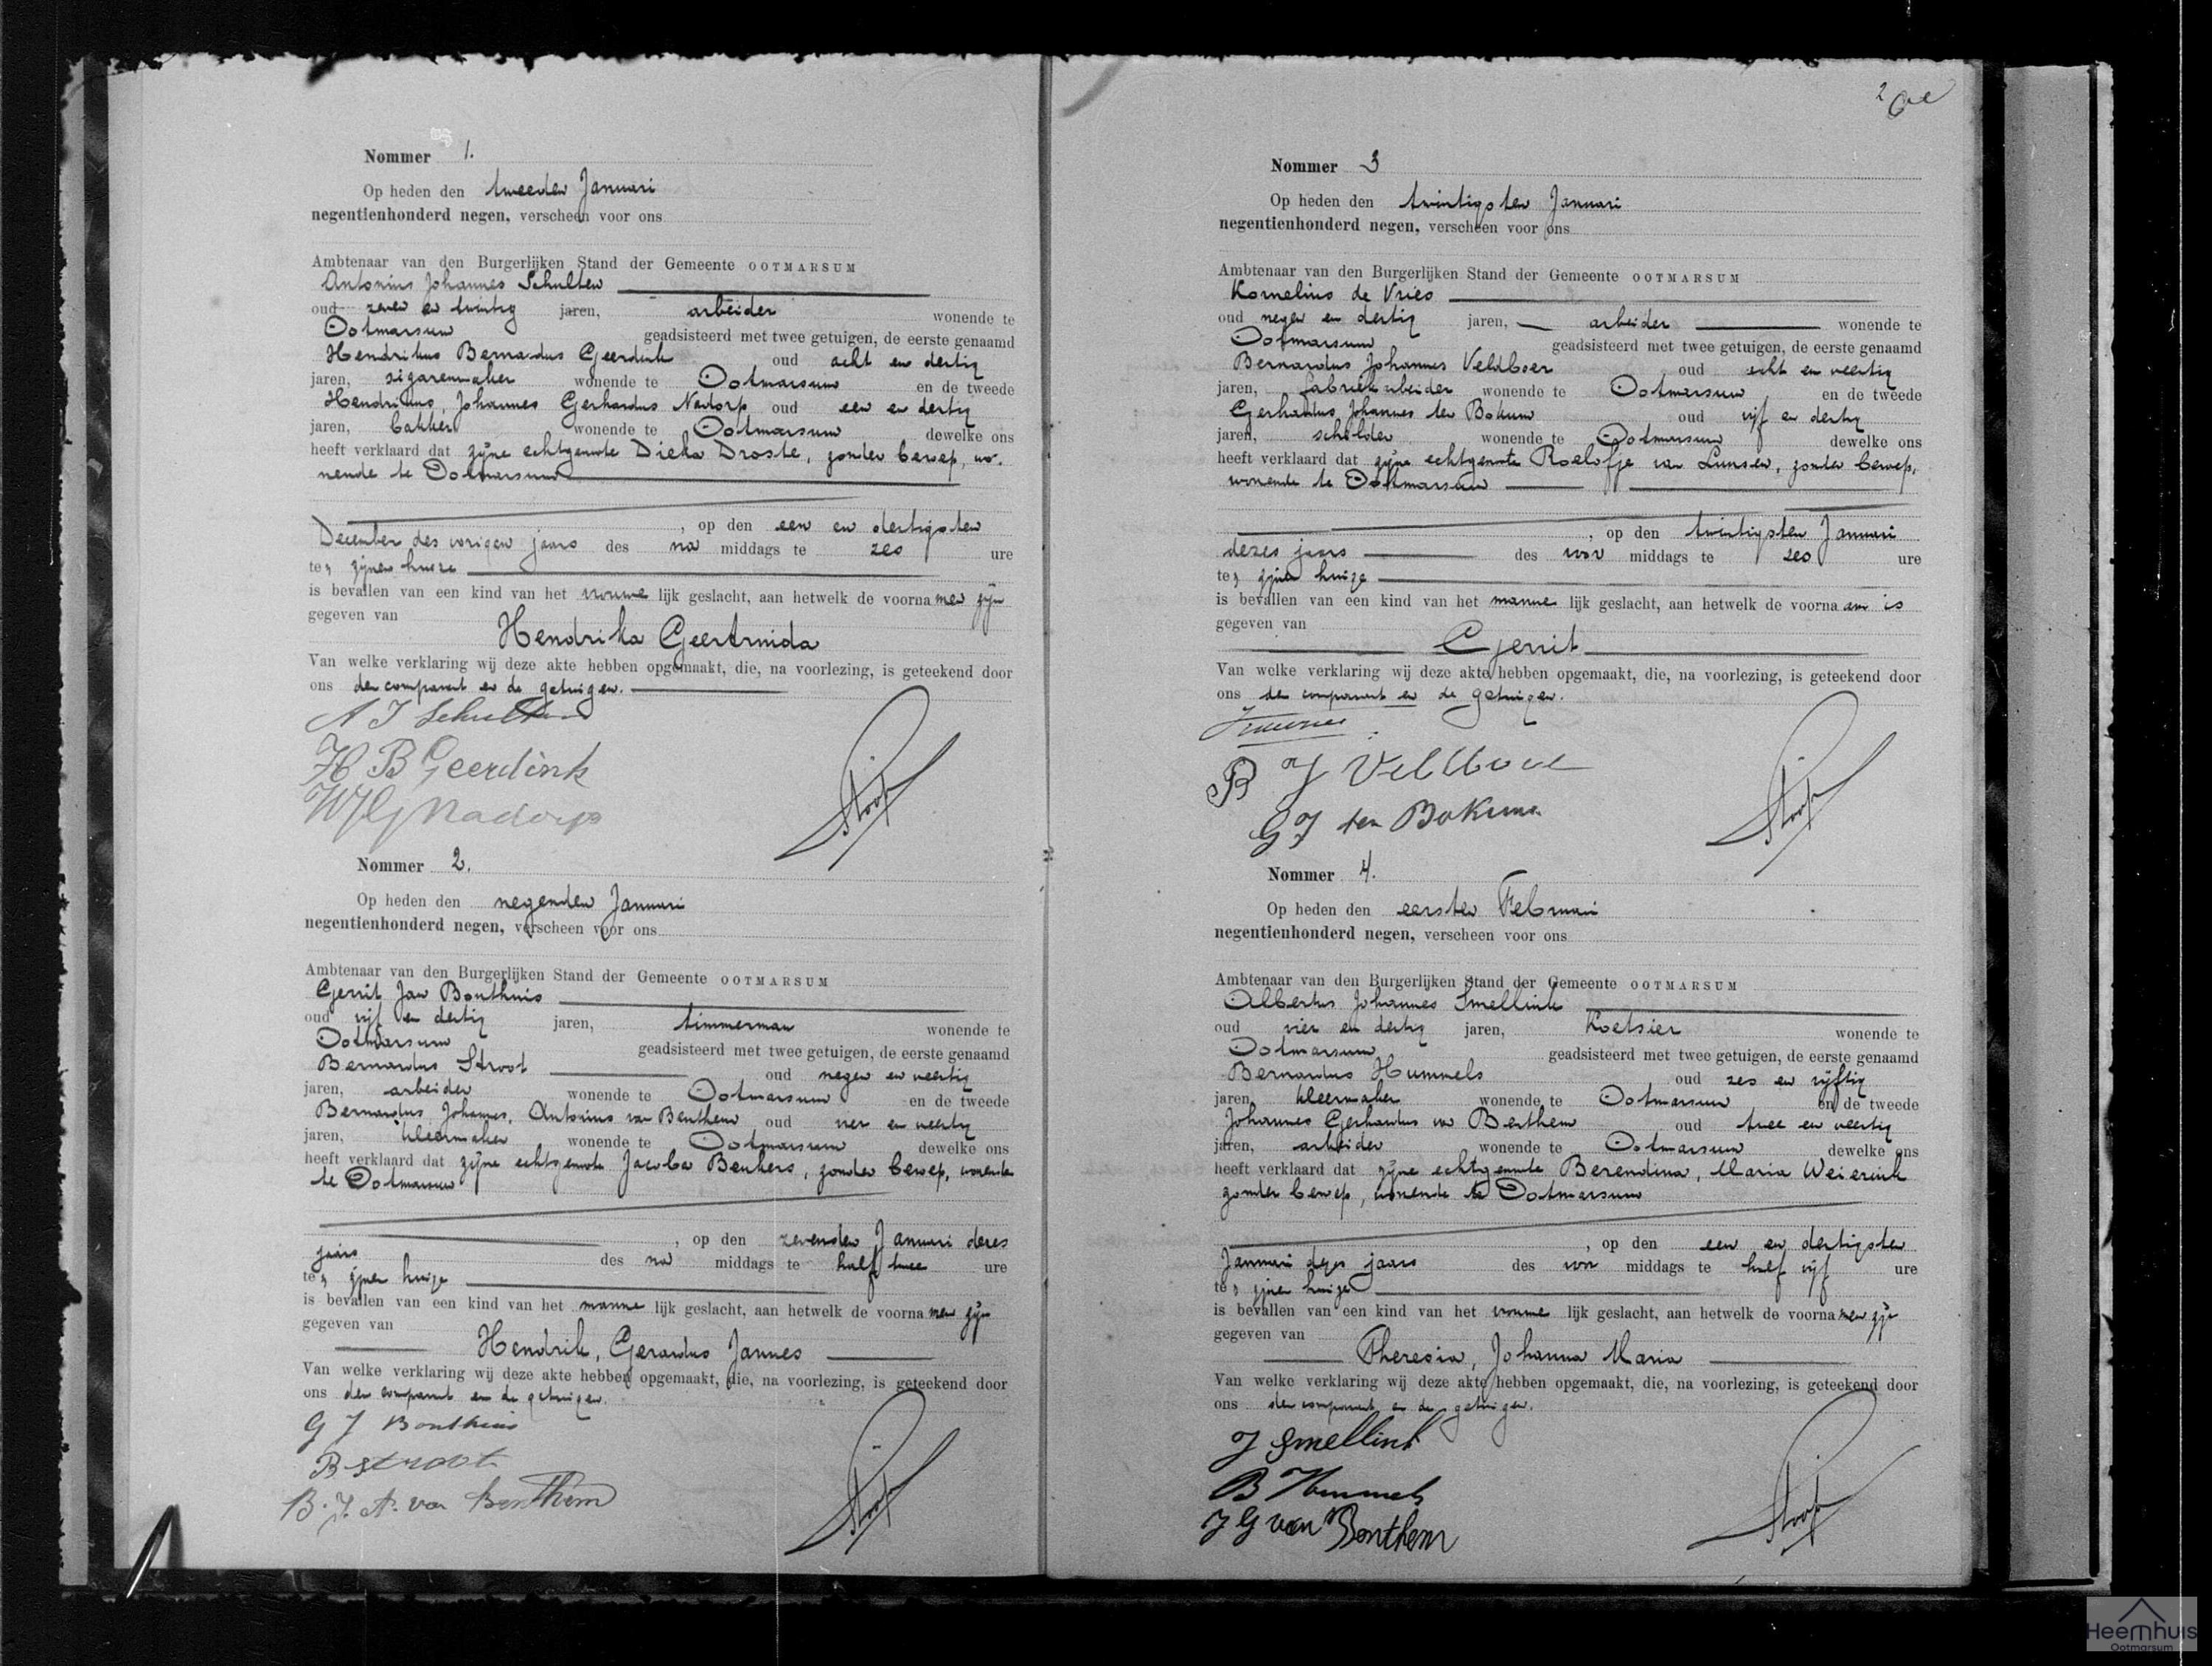 Nommer 1.
Op heden den tweeden Januari
negentienhonderd negen, verscheen voor ons
Ambtenaar van den Burgerlijken Stand der Gemeente OOTMARSUM
Antonius Johannes Schulten
oud zeven en twintig jaren, arbeider wonende te
Ootmarsum geadsisteerd met twee getuigen, de eerste genaamd
Hendrikus Bernardus Geerdink oud acht en dertig
jaren, sigarenmaker wonende te Ootmarsum en de tweede
Hendrikus, Johannes Gerhardus Nadorp oud een en dertig
jaren, bakker wonende te Ootmarsum dewelke ons
heeft verklaard dat zijne echtgenoote Dieka Droste, zonder beroep, wo-
nende te Ootmarsum
, op den een en dertigsten
December des vorigen jaars des na middags te zes ure
te, zijnen huize
is bevallen van een kind van het vrouwe lijk geslacht, aan hetwelk de voorna men zijn
gegeven van
Hendrika Geertruida
Van welke verklaring wij deze akte hebben opgemaakt, die, na voorlezing, is geteekend door
ons den comparant en de getuigen.
A J Schulten
H B Geerdink
Nadorp
Stoop
Nommer 2.
Op heden den negenden Januari
negentienhonderd negen, verscheen voor ons
Ambtenaar van den Burgerlijken Stand der Gemeente OOTMARSUM
Gerrit Jan Bonthuis
oud vijf en dertig jaren, timmerman wonende te
Ootmarsum geadsisteerd met twee getuigen, de eerste genaamd
Bernardus Stroot oud negen en veertig
jaren, arbeider wonende te Ootmarsum en de tweede
Bernardus, Johannes, Antonius van Benthem oud vier en veertig
jaren, kleermaker wonende te Ootmarsum dewelke ons
heeft verklaard dat zijne echtgenoote Jacoba Beukers, zonder beroep, wonende
te Ootmarsum
, op den zevenden Januari dezes
jaars des na middags te half twee ure
te, zijnen huize
is bevallen van een kind van het manne lijk geslacht, aan hetwelk de voorna men zijn
gegeven van
Hendrik, Gerardus Jannes
Van welke verklaring wij deze akte hebben opgemaakt, die, na voorlezing, is geteekend door
ons den comparant en de getuigen.
G J Bonthuis
B Stroot
B. J. A. van Benthem
Stoop
2
Nommer 3
Op heden den twintigsten Januari
negentienhonderd negen, verscheen voor ons
Ambtenaar van den Burgerlijken Stand der Gemeente OOTMARSUM
Kornelius de Vries
oud negen en dertig jaren, arbeider wonende te
Ootmarsum geadsisteerd met twee getuigen, de eerste genaamd
Bernardus Johannes Veldboer oud acht en veertig
jaren, fabriekarbeider wonende te Ootmarsum en de tweede
Gerhardus Johannes ten Bokum oud vijf en dertig
jaren, schilder wonende te Ootmarsum dewelke ons
heeft verklaard dat zijne echtgenoote Roelofje van Lunsen, zonder beroep,
wonende te Ootmarsum
, op den twintigsten Januari
dezes jaars des voor middags te zes ure
te, zijnen huize
is bevallen van een kind van het manne lijk geslacht, aan hetwelk de voorna am is
gegeven van
Gerrit
Van welke verklaring wij deze akte hebben opgemaakt, die, na voorlezing, is geteekend door
ons den comparant en de getuigen.
B J Veldboer
G J ten Bokum
Stoop
Nommer 4.
Op heden den eersten Februari
negentienhonderd negen, verscheen voor ons
Ambtenaar van den Burgerlijken Stand der Gemeente OOTMARSUM
Albertus Johannes Smellink
oud vier en dertig jaren, koetsier wonende te
Ootmarsum geadsisteerd met twee getuigen, de eerste genaamd
Bernardus Hummels oud zes en vijftig
jaren, kleermaker wonende te Ootmarsum en de tweede
Johannes Gerhardus van Benthem oud twee en veertig
jaren, arbeider wonende te Ootmarsum dewelke ons
heeft verklaard dat zijne echtgenoote Berendina, Maria Weierink
zonder beroep, wonende te Ootmarsum
, op den een en dertigsten
Januari dezes jaars des voor middags te half vijf ure
te, zijnen huize
is bevallen van een kind van het vrouwe lijk geslacht, aan hetwelk de voorna men zijn
gegeven van
Theresia, Johanna Maria
Van welke verklaring wij deze akte hebben opgemaakt, die, na voorlezing, is geteekend door
ons den comparant en de getuigen.
J Smellink
B Hummels
J G van Benthem
Stoop
Heemhuis
Ootmarsum